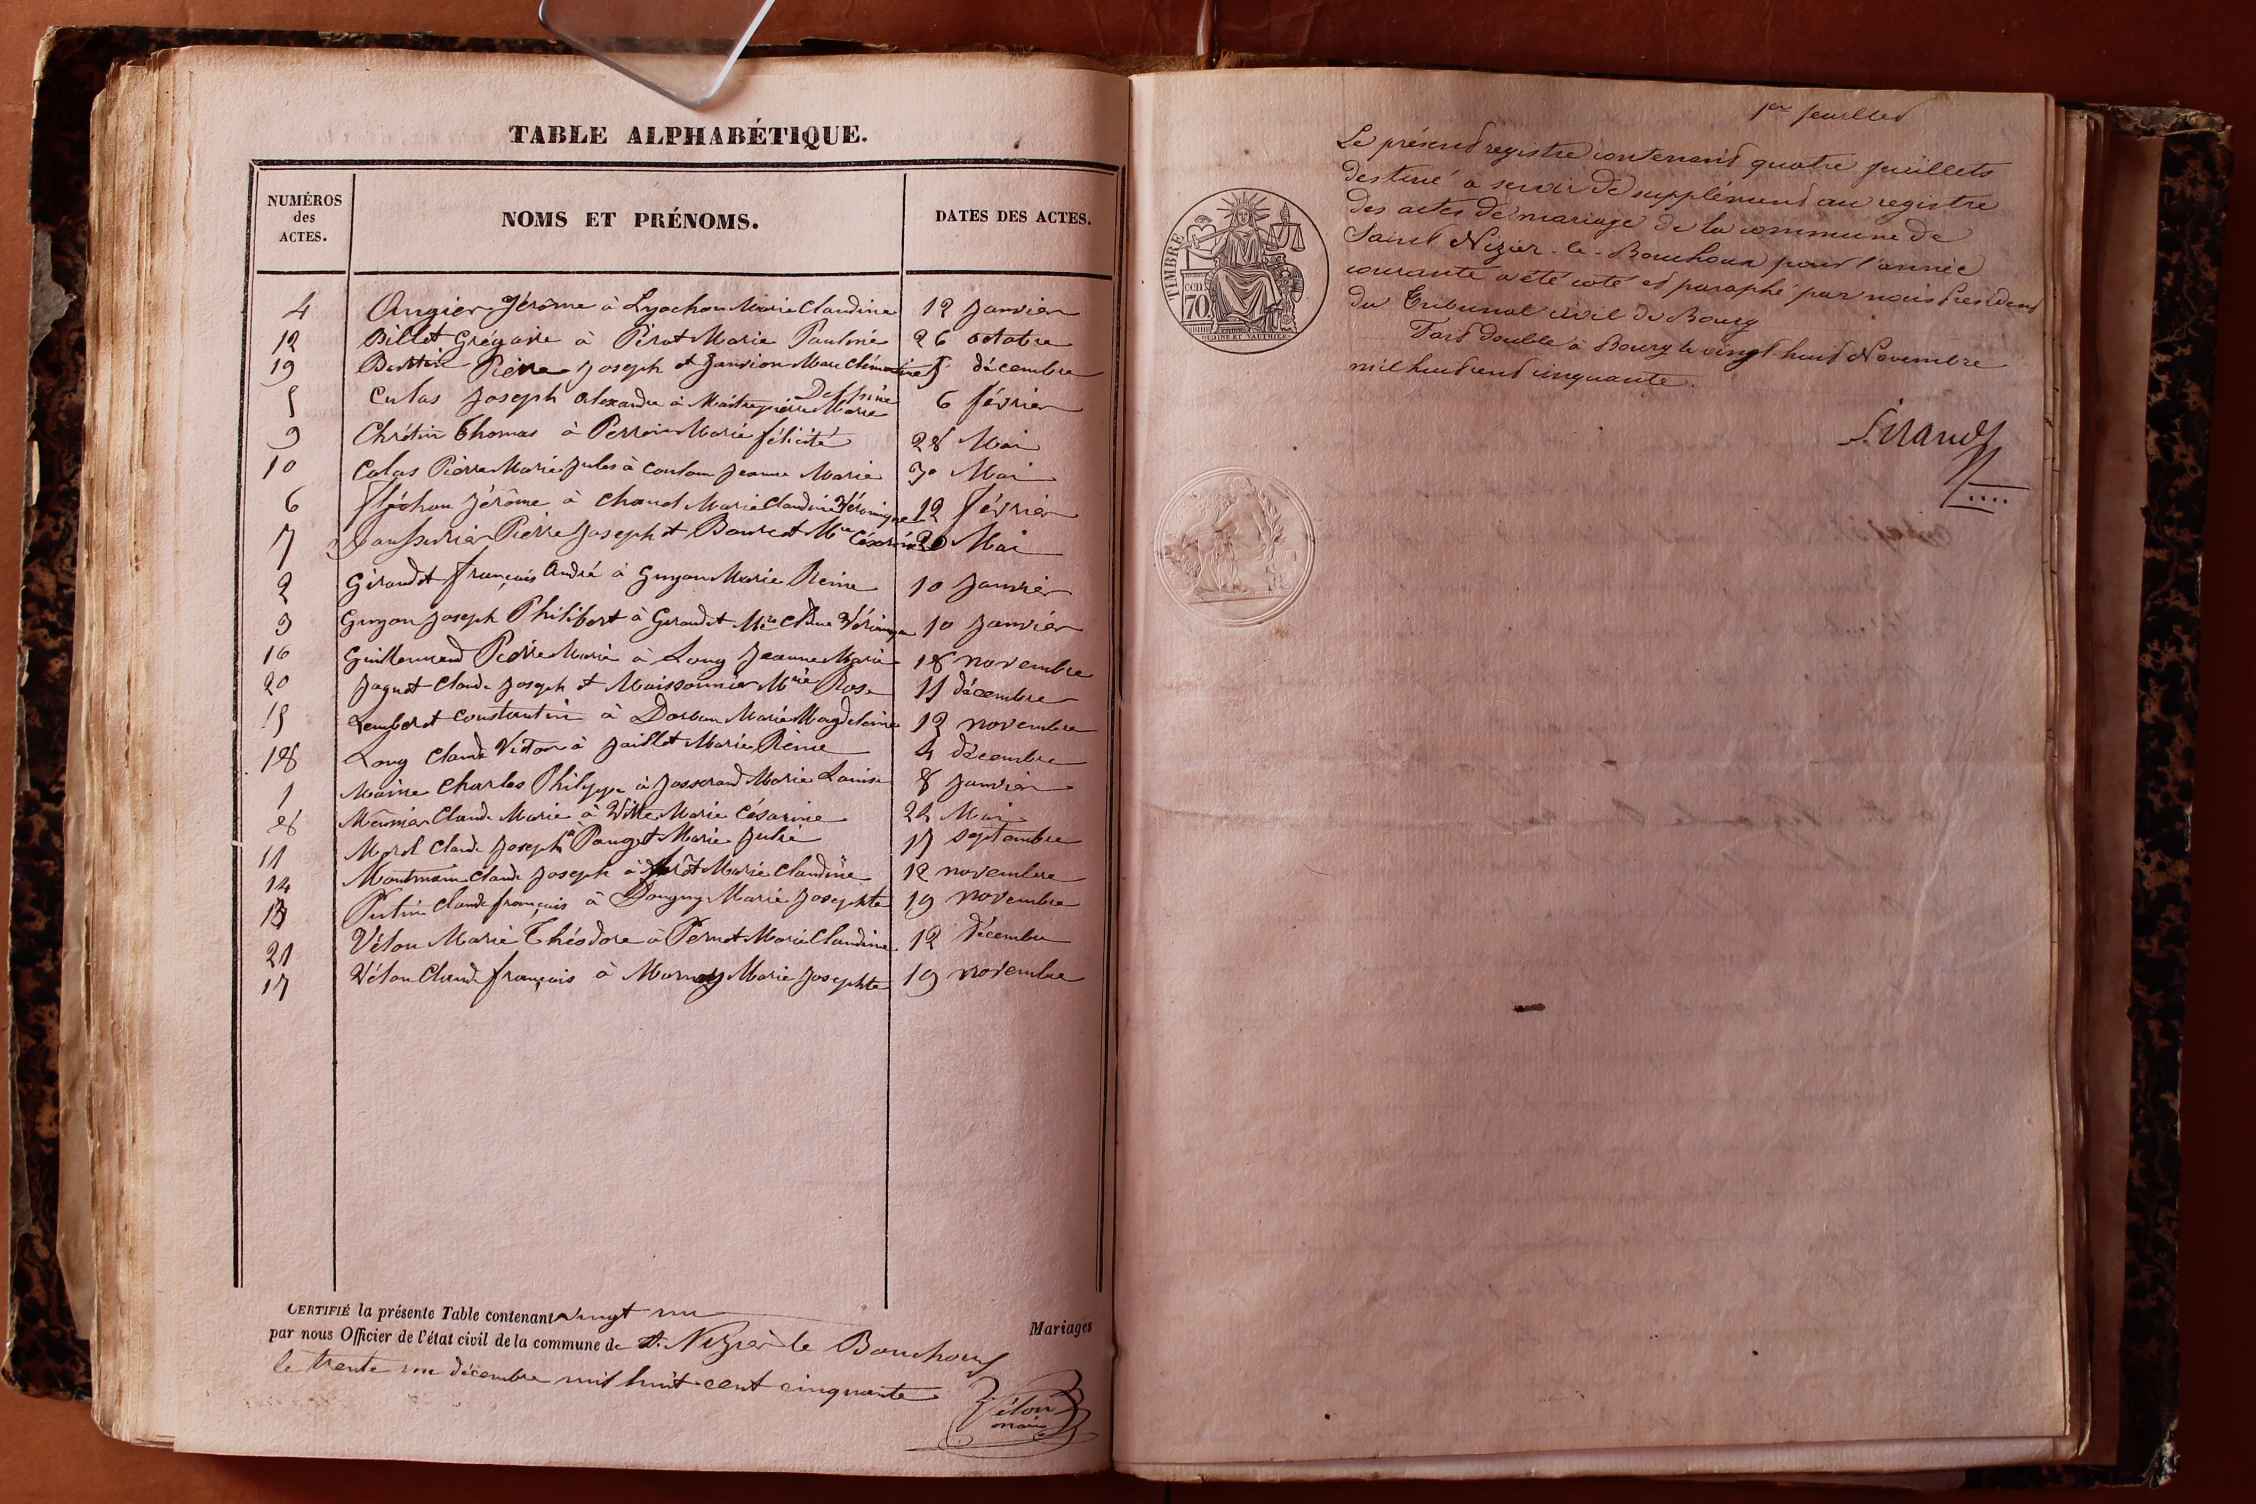 TABLE ALPHABÉTIQUE.
NUMÉROS
des
ACTES.
NOMS ET PRÉNOMS.
DATES DES ACTES.
4 Augier Jérôme à Lyochon Marie Claudine 12 Janvier
12 Billet Grégoire à Pirat Marie Pauline 26 octobre
19 Pierre Joseph et Janvion Marie Clémentine 5 décembre
5 Culas Joseph Alexandre à Maitrepierre Marie Delphine 6 février
9 Chrétin Thomas à Perroin Marie félicité 28 Mai
10 Colas Pierre Marie Jules à Coulon Jeanne Marie 30 Mai
6 fléchon Jérôme à Chanel Marie Claudine Véronique 12 février
7 Pierre Joseph et Bouret Mie Césarine 20 Mai
2 Giraudet françois André à Guyon Marie Reine 10 Janvier
3 Guyon Joseph Philibert à Geraudet Mie Cldine Véronique 10 Janvier
16 Guillermend Pierre Marie à Long Jeanne Marie 18 novembre
20 Jaquet Claude Joseph et Maissonnier Mrie Rose 11 décembre
15 Lemberet Constantin à Dorban Marie Magdeleine 13 novembre
18 Long Claude Victor à Jaillet Marie Reine 4 décembre
1 Maine Charles Philippe à Josserand Marie Louise 8 Janvier
8 Meunier Claude Marie à Vitte Marie Césarine 22 Mai
11 Morel Claude Joseph à Pauget Marie Julie 17 septembre
14 Montmain Claude Joseph à Marie Claudine 12 novembre
13 Pertin Claude françois à Donguy Marie Josephte 19 novembre
21 Vélon Marie Théodore à Pernet Marie Claudine 12 Décembre
17 Vélon Claude françois à Mornay Marie Josephte 19 novembre
CERTIFIÉ la présente Table contenant vingt un Mariages
par nous Officier de l'état civil de la commune de St. Nizier le Bouchoux
le trente un décembre mil huit cent cinquante
Vélon
maire
1er feuillet
Le présent registre contenant quatre feuillets
destiné à servir de supplément au registre
des actes de mariage de la commune de
Saint Nizier-le-Bouchoux pour l'année
courante a été coté et paraphé par nous Président
du Tribunal civil de Bourg
Fait double à Bourg le vingt huit Novembre
mil huit cent cinquante.
TIMBRE
70